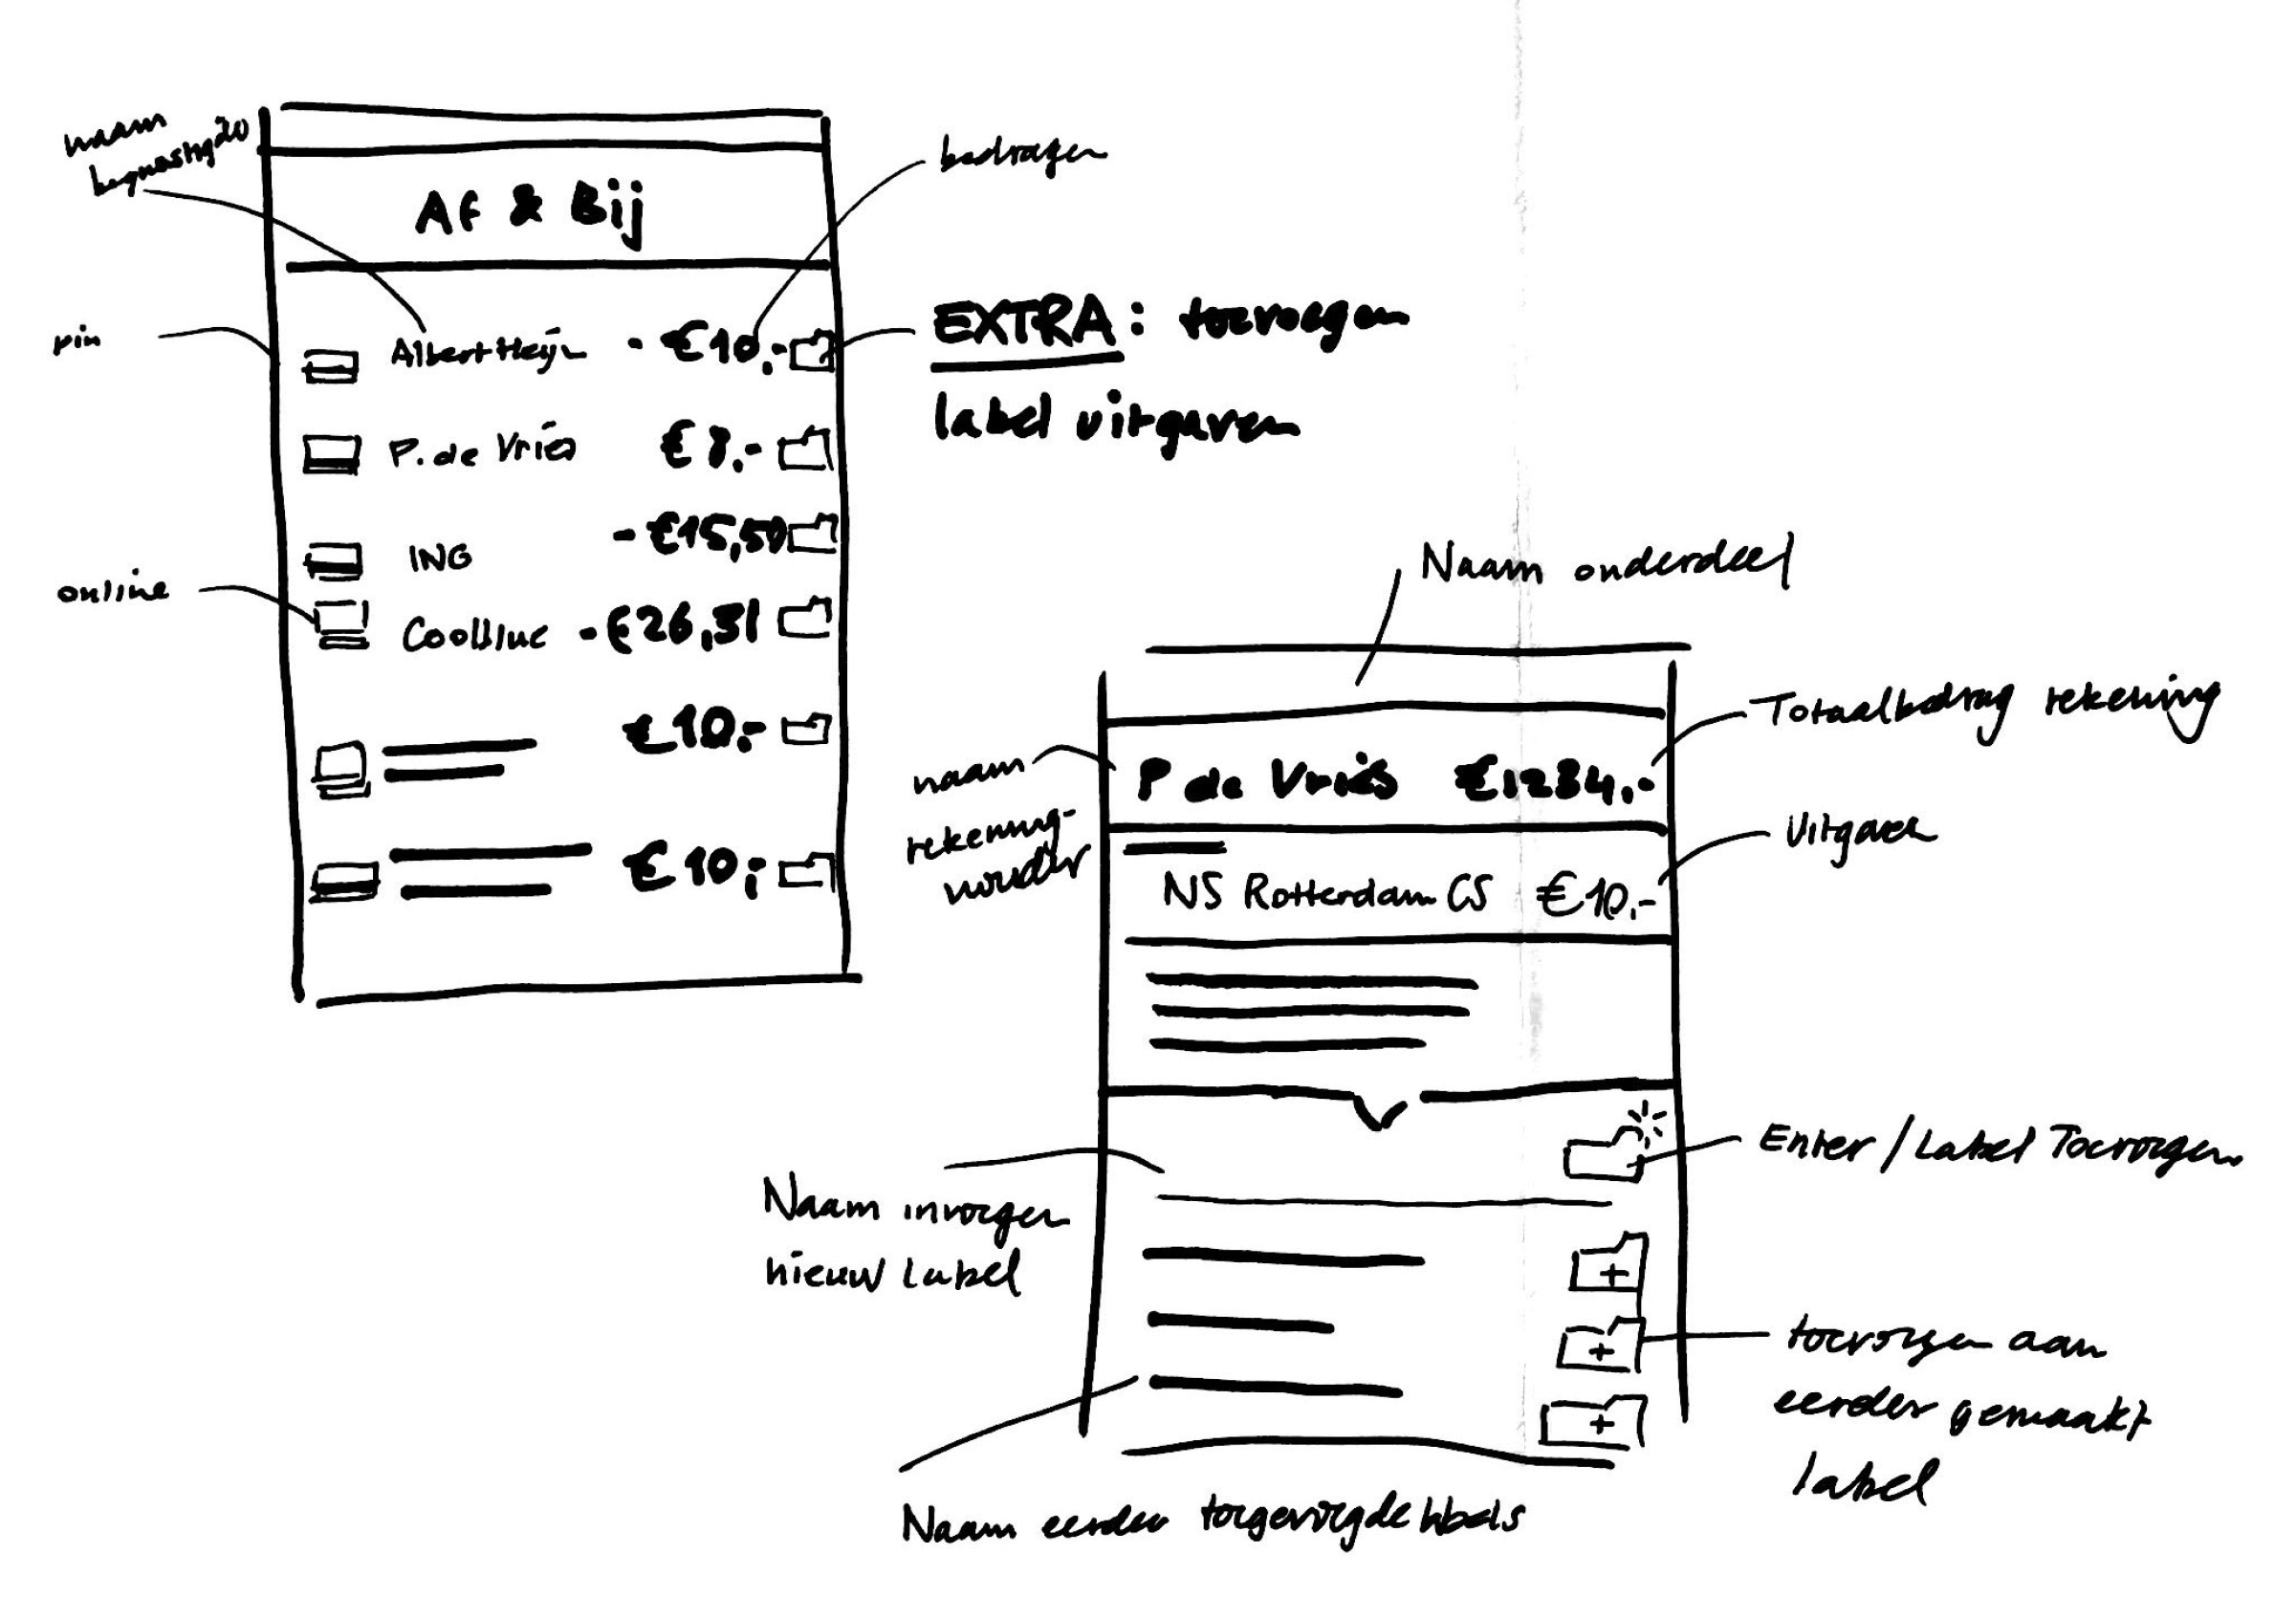 naam
bedragen
Af & Bij
pin
Albert Heijn - €10,-
EXTRA: toevoegen
label uitgaven
P. de Vries €8,-
ING - €15,50
online
Coolblue - €26,31
€10,-
€10,-
Naam onderdeel
Totaalbedrag rekening
naam
rekening-
houder
P de Vries €1234,-
Uitgaven
NS Rotterdam CS €10,-
Enter / Label Toevoegen
Naam invoegen
nieuw label
+
+
+
toevoegen aan
eerder gemaakt
label
Naam eerder toegevoegde labels